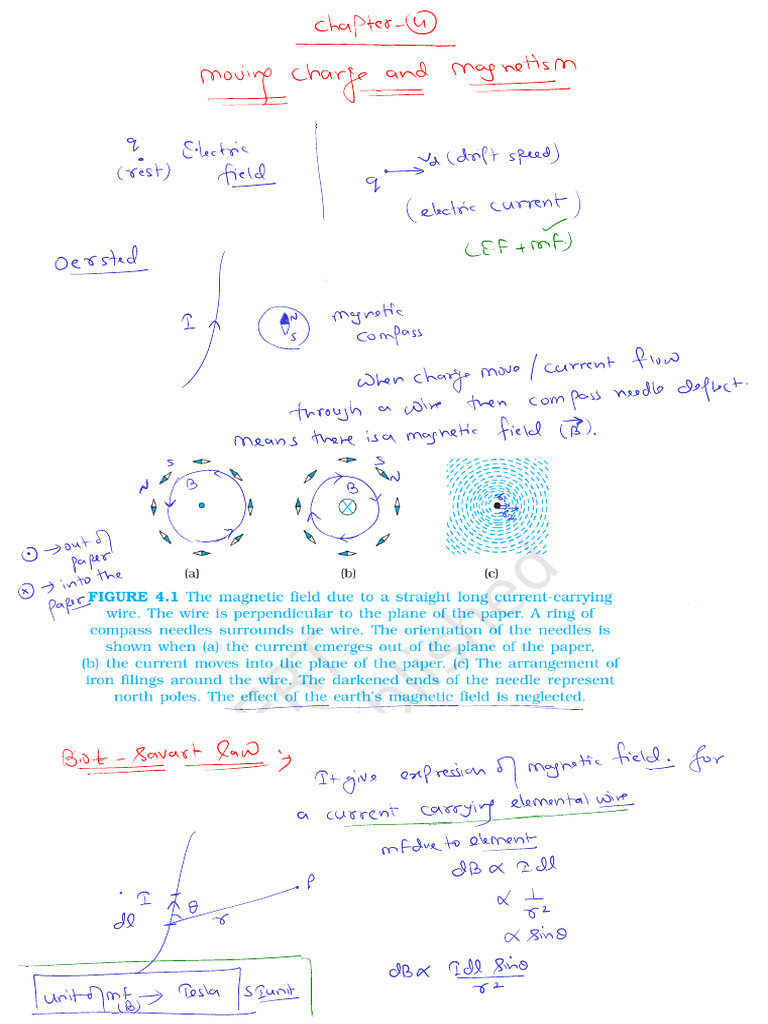 Chapter-4
moving charge and magnetism
q
(rest)
Electric
field
q
Vd (drift speed)
(electric current)
(E.F + mF.)
Oersted
I
N
S
magnetic
compass
when charge move / current flow
through a wire then compass needle deflect.
means there is a magnetic field (B⃗).
N S
B
B
S
N
r1
r2
⊙ → out of
paper
⊗ → into the
paper
(a) (b) (c)
FIGURE 4.1 The magnetic field due to a straight long current-carrying
wire. The wire is perpendicular to the plane of the paper. A ring of
compass needles surrounds the wire. The orientation of the needles is
shown when (a) the current emerges out of the plane of the paper,
(b) the current moves into the plane of the paper. (c) The arrangement of
iron filings around the wire. The darkened ends of the needle represent
north poles. The effect of the earth's magnetic field is neglected.
Biot - Savart law :→
It give expression of magnetic field. for
a current carrying elemental wire
mf due to element
dB ∝ I dl
∝ 1/r²
∝ sinθ
dB ∝ I dl sinθ / r²
I
dl
θ
r
P
Unit of mf (B) → Tesla SI unit